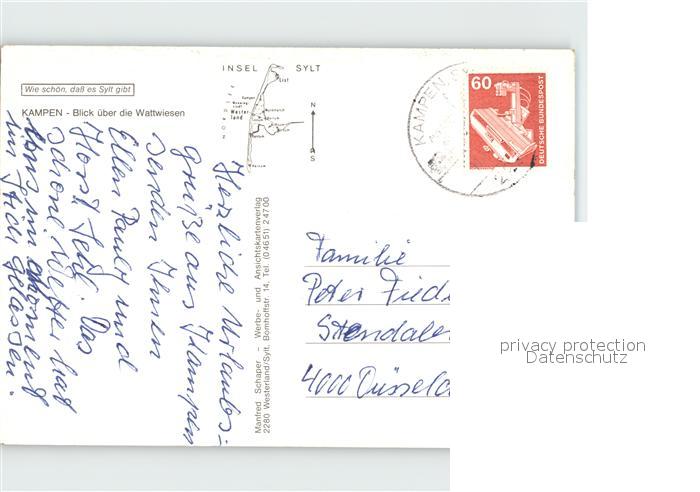 Wie schön, daß es Sylt gibt
KAMPEN - Blick über die Wattwiesen
INSEL SYLT
List
Kampen
Westerland
N
S
Herzliche Urlaubs=
grüße aus Kampen
senden Ihnen
Ellen Pauly und
Horst Das
schöne Wetter hat
uns im Moment
im Stich gelassen.
Manfred Schaper – Werbe- und Ansichtskartenverlag
2280 Westerland/Sylt, Bomhoffstr. 14, Tel. (04651) 24700
KAMPEN
60
DEUTSCHE BUNDESPOST
Familie
Peter
Stendaler
4000 Düsseld
privacy protection
Datenschutz